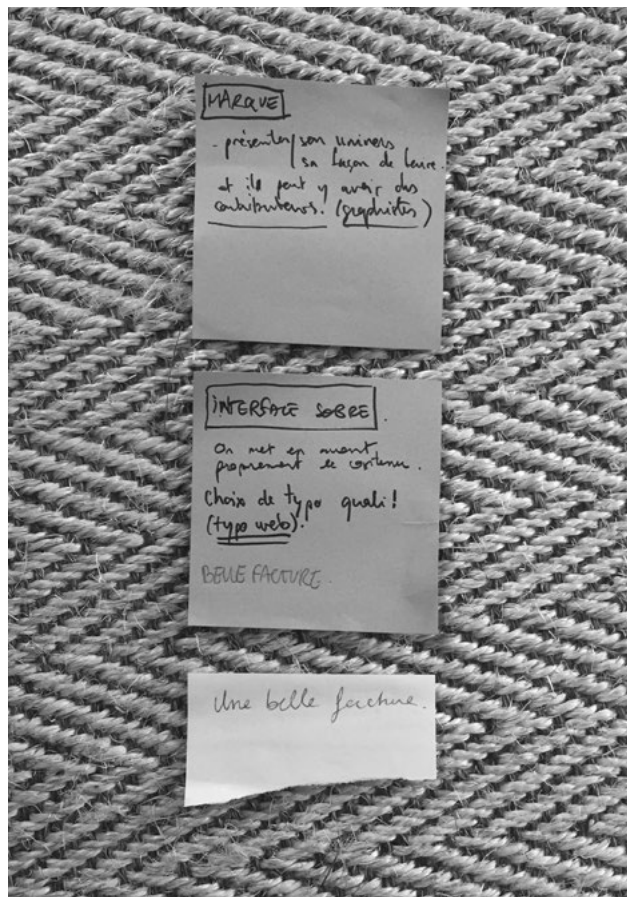 MARQUE
- présenter son univers
sa façon de faire.
et il peut y avoir des
contributeurs! (graphistes)
INTERFACE SOBRE.
On met en avant
proprement le contenu.
Choix de typo quali!
(typo web).
BELLE FACTURE.
Une belle facture.